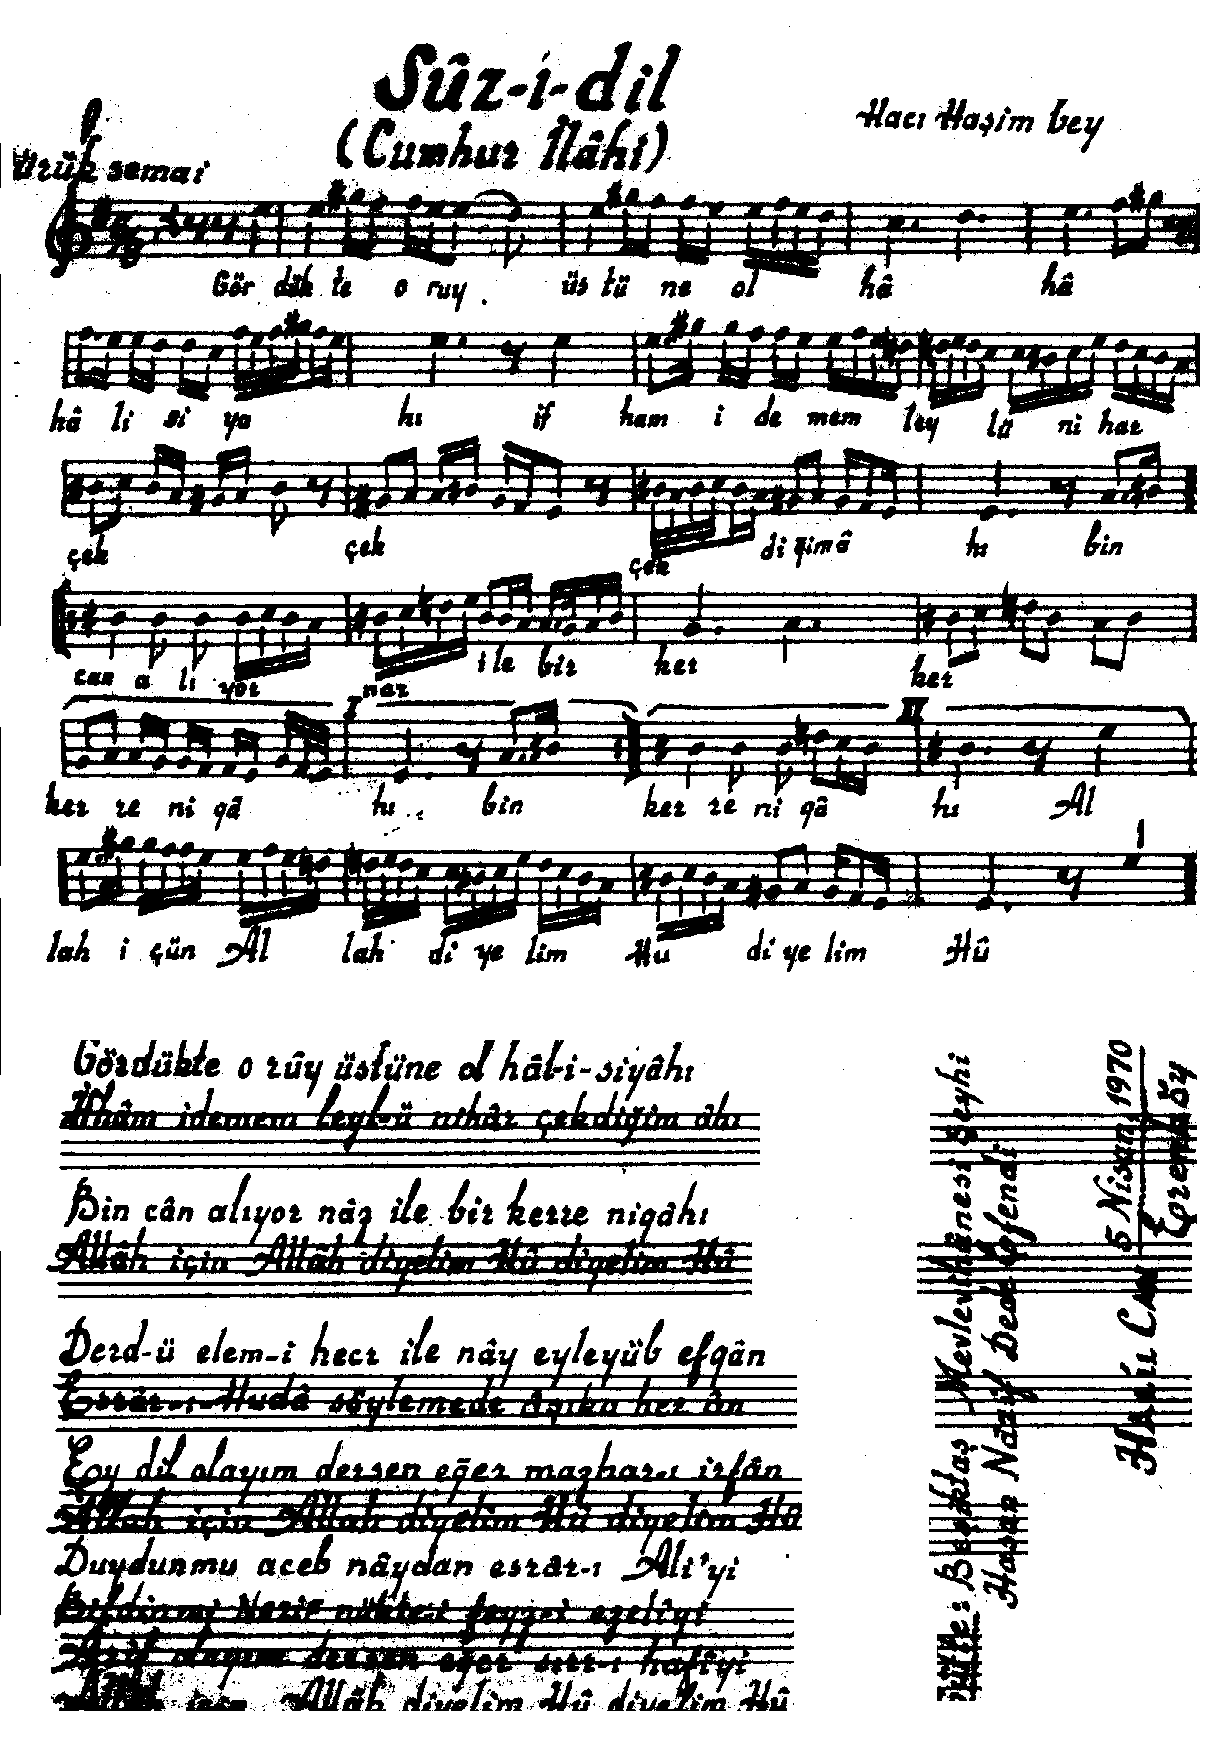 Sûz-i-dil
(Cumhur İlâhi)
Hacı Haşim bey
Ürük semai
Gör dük te o ruy . üs tü ne ol hâ hâ
hâ li si ya hı if ham i de mem ley lü ni har
çek çek çek di ğim â hı bin
can a lı yor naz ile bir ker ker
I II
ker re ni gâ hı bin ker re ni gâ hı Al
lah i çün Al lah di ye lim Hu di ye lim Hû
Gördükte o rûy üstüne ol hâl-i-siyâhı
İfhâm idemem leyl-ü nihâr çekdiğim âhı
Bin cân alıyor nâz ile bir kerre nigâhı
Allâh için Allâh diyelim Hû diyelim Hû
Derd-ü elem-i hecr ile nây eyleyüb efgân
Esrâr-ı-Hudâ söylemede âşıka her ân
Ey dil olayım dersen eğer mazhar-ı irfân
Allah için Allah diyelim Hû diyelim Hû
Duydunmu aceb nâydan esrâr-ı Ali'yi
Bildinmi Nazif nükte-i feyz-i ezeli'yi
Ârif olayım dersen eğer sırr-ı hafî'yi
Allâh için Allâh diyelim Hû diyelim Hû
Güfte: Beşiktaş Mevlevihânesi Şeyhi
Hasan Nazif Dede Efendi
5 Nisan 1970
Hrıu Can
Erenköy